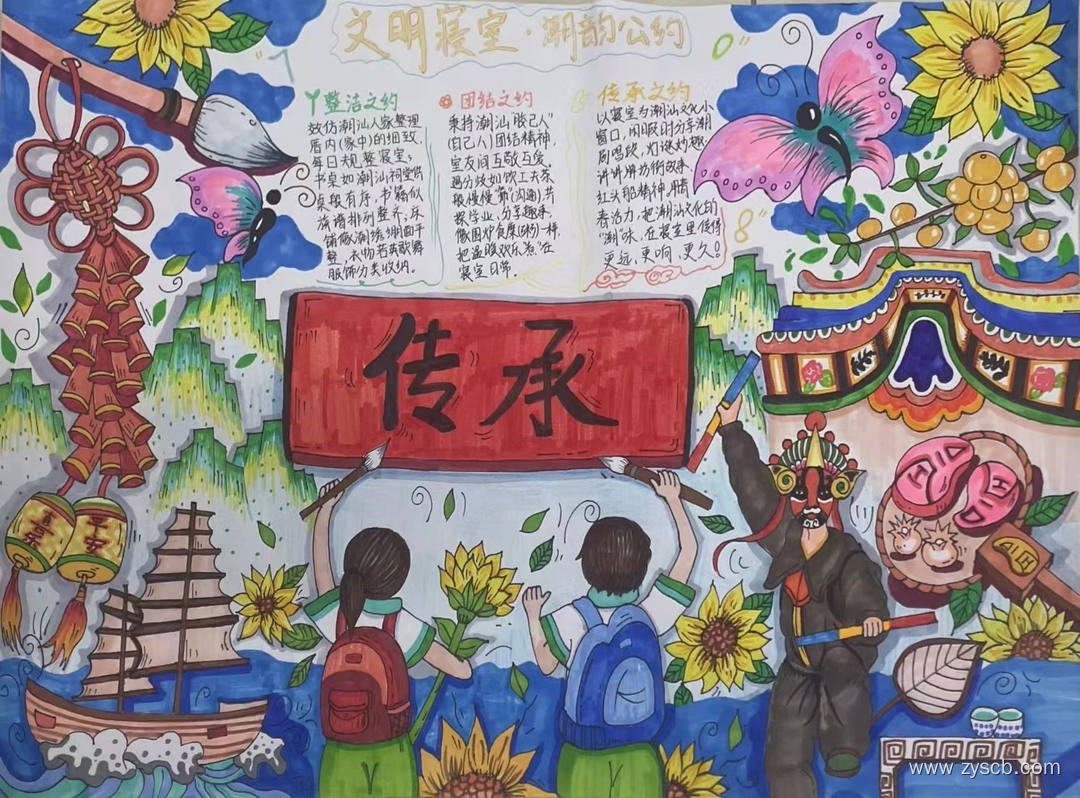 文明寝室·潮韵公约
"7
0"
8
整洁文约
效仿潮汕人家整理
厝内(家中)的细致,
每日规整寝室。
书桌如潮汕祠堂供
桌般有序,书籍似
族谱排列整齐,床
铺似潮绣绷面平
整,衣物若英歌舞
服饰分类收纳。
团结文约
秉持潮汕"胶己人"
(自己人)团结精神,
室友间互敬互爱。
遇分歧如饮工夫茶
般慢慢"
(沟通),共
探学业,分享趣味,
像围炉食糜(粥)一样
把温暖欢乐煮"在
寝室日常。
传承文约
以寝室为潮汕文化小
窗口,闲暇时分享潮
剧唱段,灯谜妙趣,
讲讲牌坊街故事、
红头船精神,用青
春活力,把潮汕文化的
"潮"味,在寝室里传得
更远,更响,更久!
传承
喜乐
平安
www.zyscb.com